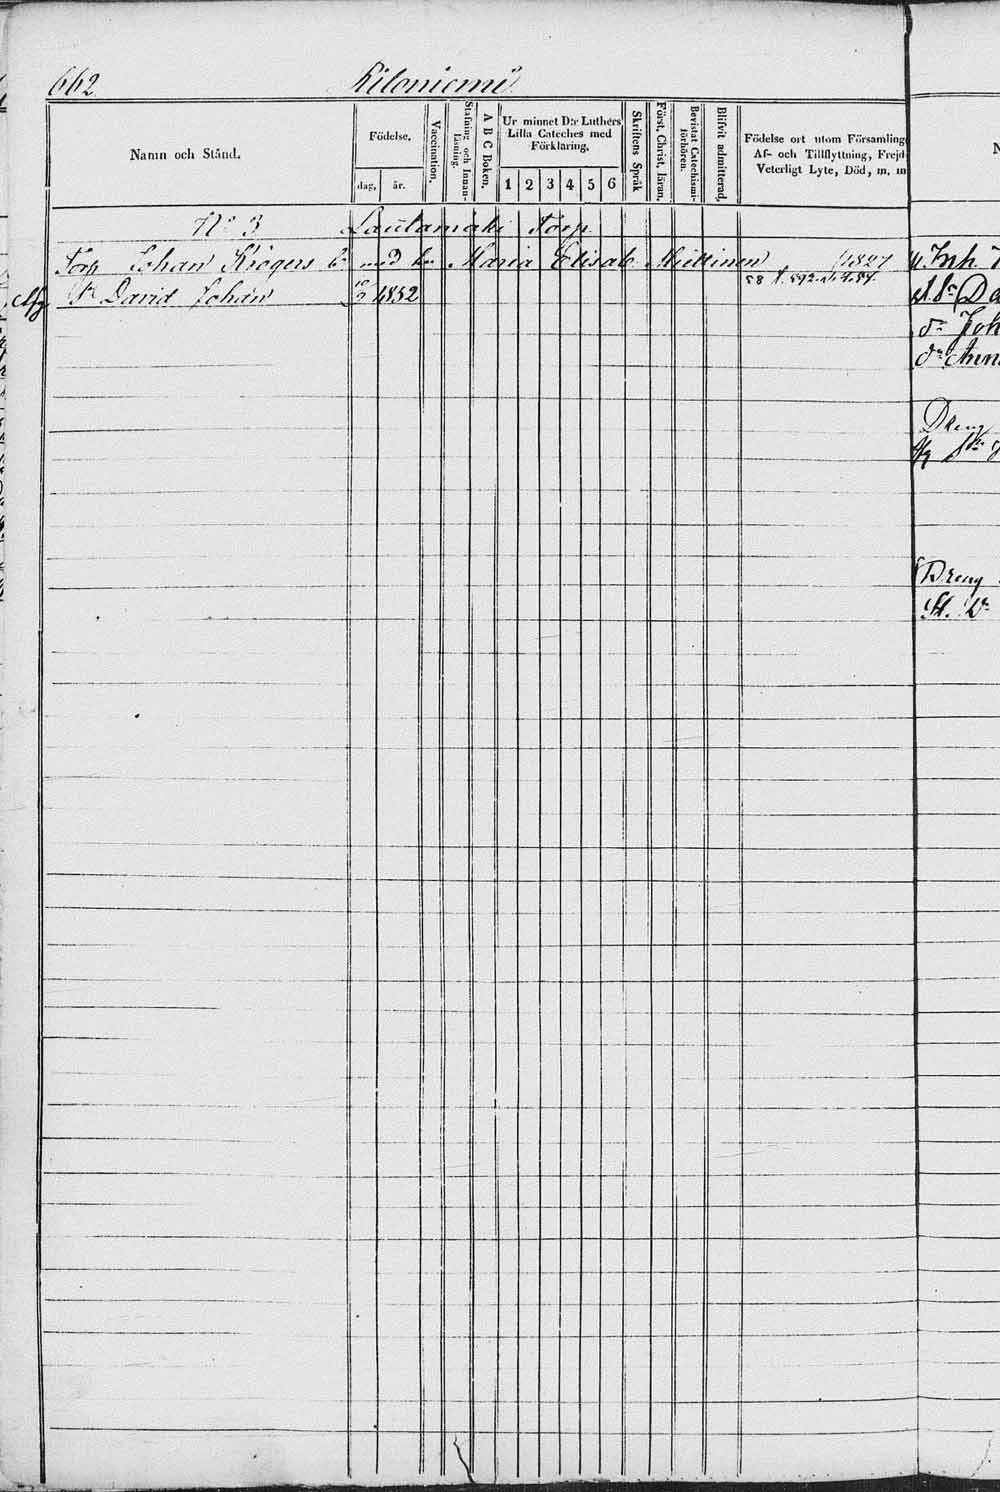 662. Kiloniemi
Namn och Stånd.
Födelse.
dag, år.
Vaccination.
Stafning och Innan-läsning.
A B C Boken.
Ur minnet D:r Luthers Lilla Cateches med Förklaring.
1 2 3 4 5 6
Skriftens Språk
Först. Christ. läran.
Bevistat Catechismi-förhören.
Blifvit admitterad.
Födelse ort utom Församling
Af- och Tillflyttning, Frejd
Veterligt Lyte, Död, m. m
N:o 3 Lautamäki Torp
Torp Johan Krögers med Maria Elisab. Miettinen 1827
S. David Johan 10/2 1852
Inh.
Da
Joh
Ann
Dreng
Dreng
St.